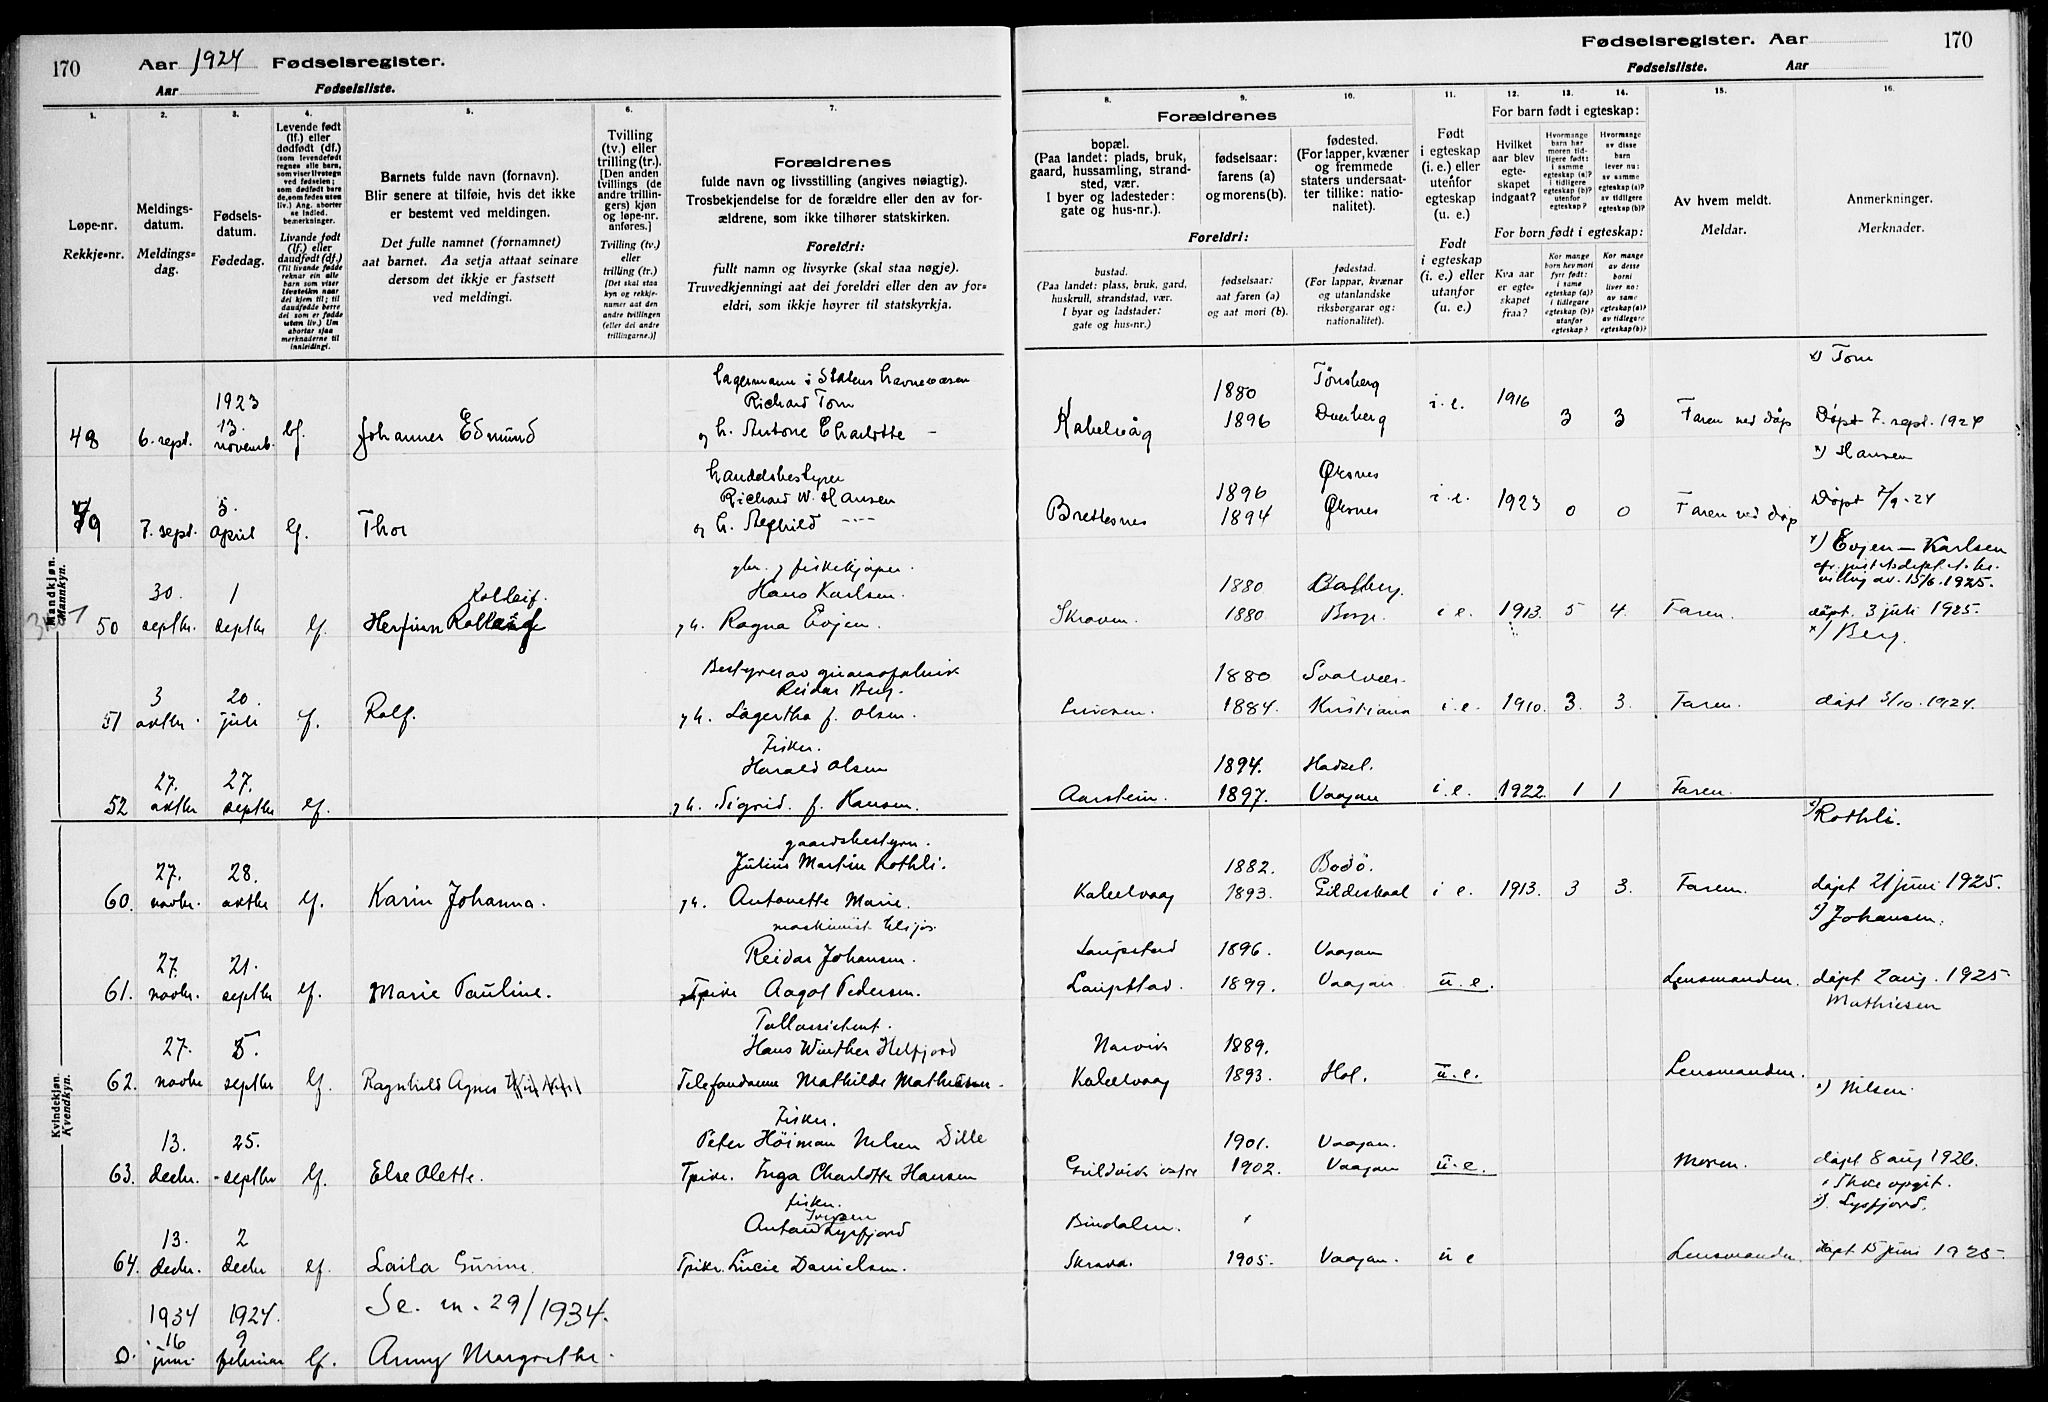 170
Aar 1924 Fødselsregister.
Aar Fødselsliste.
Fødselsregister. Aar
170
Fødselsliste. Aar
1.
Løpe-nr.
Rekkje=nr.
2.
Meldings-
datum.
Meldings=
dag.
3.
Fødsels-
datum.
Fødedag.
4.
Levende født
(lf.) eller
dødfødt (df.)
Livande født
(lf.) eller
daudfødt (df.)
5.
Barnets fulde navn (fornavn).
Blir senere at tilføie, hvis det ikke
er bestemt ved meldingen.
Det fulle namnet (fornamnet)
aat barnet. Aa setja attaat seinare
dersom det ikkje er fastsett
ved meldingi.
6.
Tvilling
(tv.) eller
trilling (tr.).
[Den anden
tvillings (de
andre trillin-
gers) kjøn
og løpe-nr.
anføres.]
Tvilling (tv.)
eller
trilling (tr.)
[Det skal staa
kyn og rekkje-
numer aat den
andre tvillingen
(eller dei andre
trillingarne.)]
7.
Forældrenes
fulde navn og livsstilling (angives nøiagtig).
Trosbekjendelse for de forældre eller den av for-
ældrene, som ikke tilhører statskirken.
Foreldri:
fullt namn og livsyrke (skal staa nøgje).
Truvedkjenningi aat dei foreldri eller den av for=
eldri, som ikkje høyrer til statskyrkja.
Forældrenes
8.
bopæl.
(Paa landet: plads, bruk,
gaard, hussamling, strand-
sted, vær.
I byer og ladesteder:
gate og hus-nr.).
9.
fødselsaar:
farens (a)
og morens (b).
10.
fødested.
(For lapper, kvæner
og fremmede
staters undersaat-
ter tillike: natio-
nalitet).
Foreldri:
bustad.
(Paa landet: plass, bruk, gard,
huskrull, strandstad, vær.
I byar og ladstader:
gate og hus=nr.)
fødselsaar:
aat faren (a)
og aat mori (b).
fødestad.
(For lappar, kvænar
og utanlandske
riksborgarar og:
nationalitet).
11.
Født
i egteskap
(i. e.) eller
utenfor
egteskap
(u. e.)
Født
i egteskap
(i. e.) eller
utanfor
(u. e.)
12. 13. 14.
For barn født i egteskap:
Hvilket
aar blev
egte-
skapet
indgaat?
Hvormange
barn har
moren tid-
ligere født:
i samme
egteskap (a)?
i tidligere
egteskap (b)?
utenfor
egteskap?
Hvormange
av disse
barn
lever nu:
av samme
egteskap (a)?
av tidligere
egteskap (b)?
For born født i egteskap:
Kva aar
er egte-
skapet
fraa?
Kor mange
born hev mori
fyrr født:
i same
egteskap (a)?
i tidlegare
egteskap (b)?
utanfor
egteskap?
Kor mange
av desse
borni
liver no:
av same
egteskap (a)?
av tidlegare
egteskap (b)?
15.
Av hvem meldt.
Meldar.
16.
Anmerkninger.
Merknader.
Mandkjøn.
Mannkyn.
48 6. sept. 1923 13. novemb. lf. Johannes Edmund
Lagermann i Statens havnevæsen
Richard Torn
og h. Antone Charlotte —
Kabelvåg 1880 1896 Tønsberg Dverberg i. e. 1916 3 3 Faren ved dåp
x) Torn
Døpt 7. sept. 1924
49 7. sept. 5. april lf. Thor
handelsbestyrer
Richard W. Hansen
og h. Reghild
Brettesnes 1896 1894 Øksnes Øksnes i. e. 1923 0 0 Faren ved dåp
x) Hansen
Døpt 7/9-24
50 30. septbr. 1 septbr lf.
Rolleif.
gbr. og fiskekjøper.
Hans Karlsen.
og h. Ragna Evjen.
Skroven. 1880 1880 Borge. i e. 1913. 5 4. Faren.
x) Evjen — Karlsen
15/6.1925.
døpt. 3 juli 1925.
51 3 oktbr. 20. juli lf. Rolf.
Bestyrer av guanofabrik
Reidar Berg.
og h. Lagertha f. Olsen.
1880 1884. Svolvær. Kristiania i e. 1910. 3. 3. Faren.
x) Berg.
døpt 3/10.1924.
52 27. oktbr 27. septbr lf.
Fisker.
Harald Olsen
og h. Sigrid. f. Hansen.
Aarstein. 1894. 1897. Hadsel. Vaagan i e. 1922. 1 1 Faren.
Kvindekjøn.
Kvendkyn.
60. 27. novbr. 28. oktbr lf. Karin Johanna.
gaardsbestyrer.
Julius Martin Rothli.
og h. Antonette Marie.
Kabelvaag 1882. 1893. Bodø. Gildeskaal i e. 1913. 3 3. Faren.
x) Rothli.
døpt 21 juni 1925.
61. 27. novbr. 21. septbr lf. Marie Pauline.
Reidar Johansen.
Tpike Aagot Pedersen.
Laupstad 1896. Vaagan
Laupstad. 1899. Vaagan u. e. Lensmanden.
x) Johansen.
døpt 2 aug. 1925
62. 27. novbr 5. septbr lf. Ragnhild Agnes
Tollassistent.
Hans Winther Helfjord
Telefondame Mathilde Mathiesen.
Narvik 1889.
Kabelvaag 1893. Hol. u. e. Lensmanden.
Mathiesen
63. 13. decbr. 25. septbr lf. Else Olette.
Fisker.
Peter Høiman Nilsen Dille
Tpike. Inga Charlotte Hansen
1901. Vaagan.
1902. Vaagan u. e. Moren.
x) Nilsen.
døpt 8 aug 1926.
64. 13. decbr. 2 decbr lf. Laila Gurine.
fisker.
Iversen
Anton Lysfjord
Tpike. Lucie Danielsen.
Bindalen.
Skrova. 1905. Vaagan. u e Lensmanden
Ikke opgit.
x) Lysfjord.
døpt 15 juni 1925
Se. nr. 29/1934.
0. 1934 16 juni 1924. 9 februar lf. Anny Margrethe.